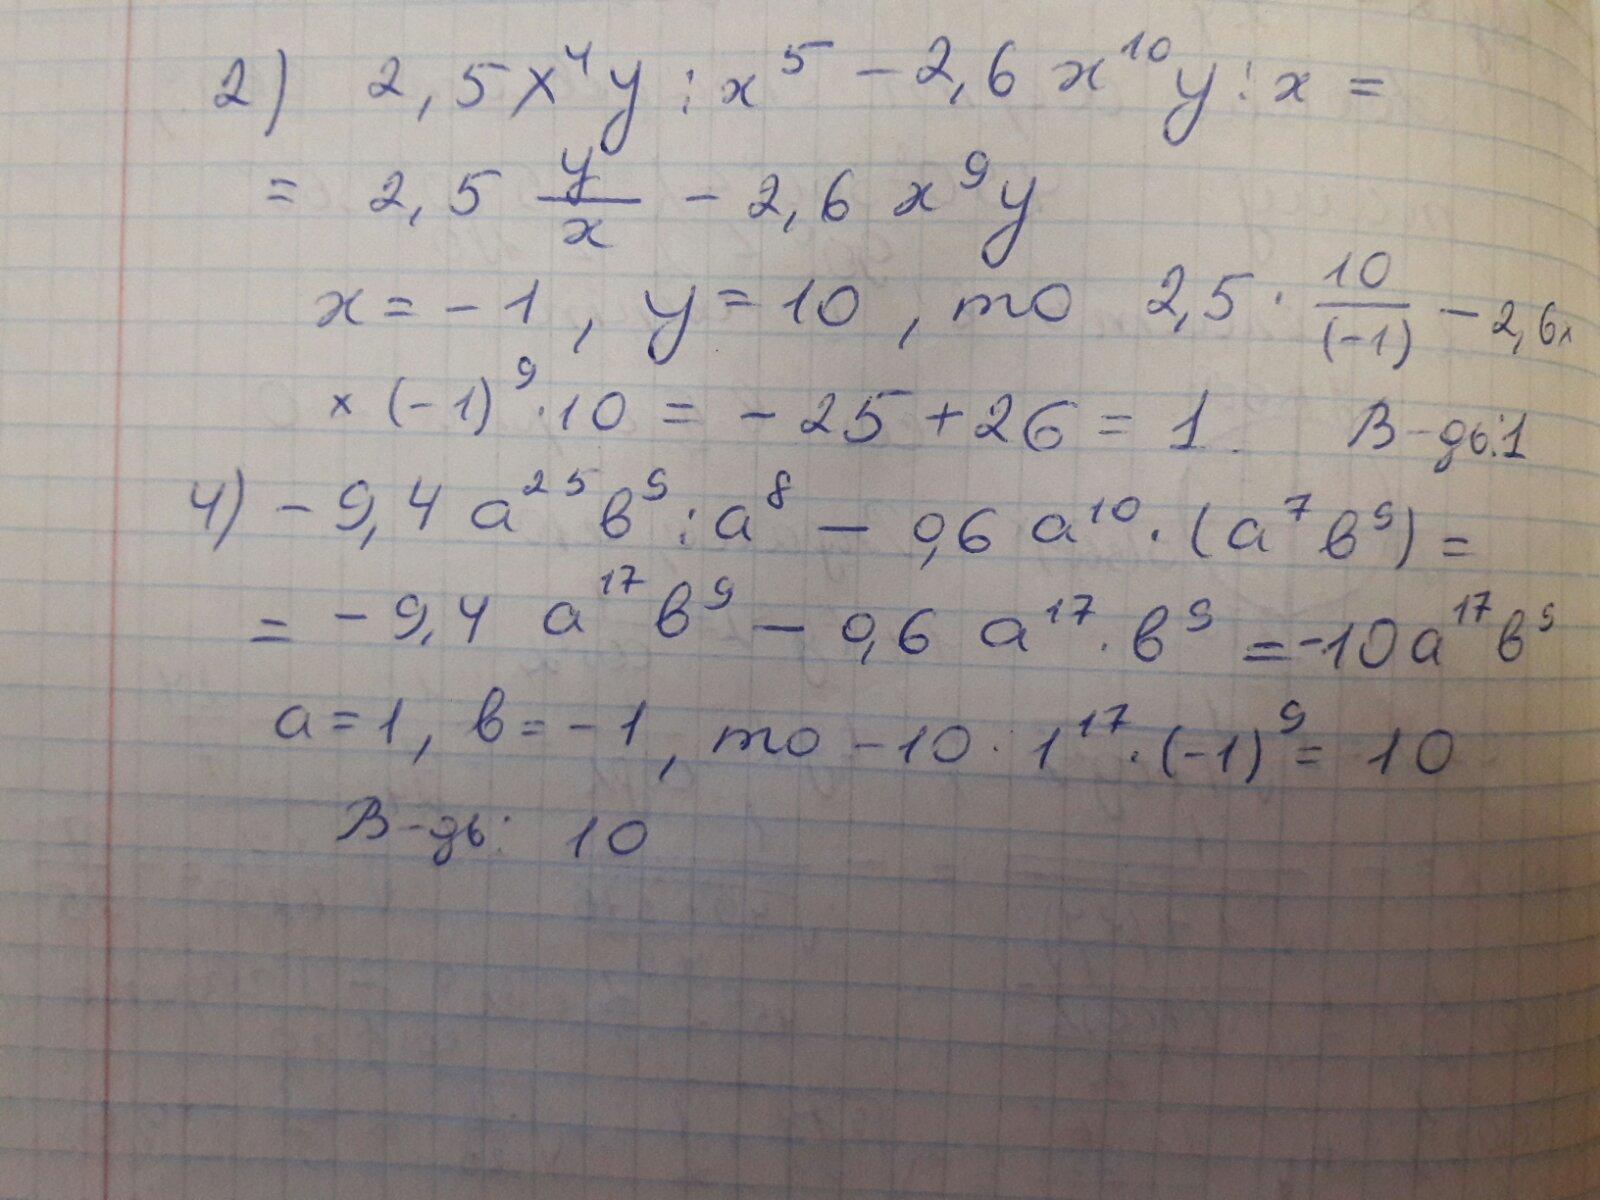 2) 2,5x⁴y : x⁵ - 2,6 x¹⁰y : x =
= 2,5 y/x - 2,6 x⁹y
x = -1, y = 10, то 2,5 · 10/(-1) - 2,6 ×
× (-1)⁹ · 10 = -25 + 26 = 1. В-дь: 1
4) -9,4 a²⁵ b⁹ : a⁸ - 0,6 a¹⁰ · (a⁷ b⁹) =
= -9,4 a¹⁷ b⁹ - 0,6 a¹⁷ · b⁹ = -10 a¹⁷ b⁹
a = 1, b = -1, то -10 · 1¹⁷ · (-1)⁹ = 10
В-дь: 10